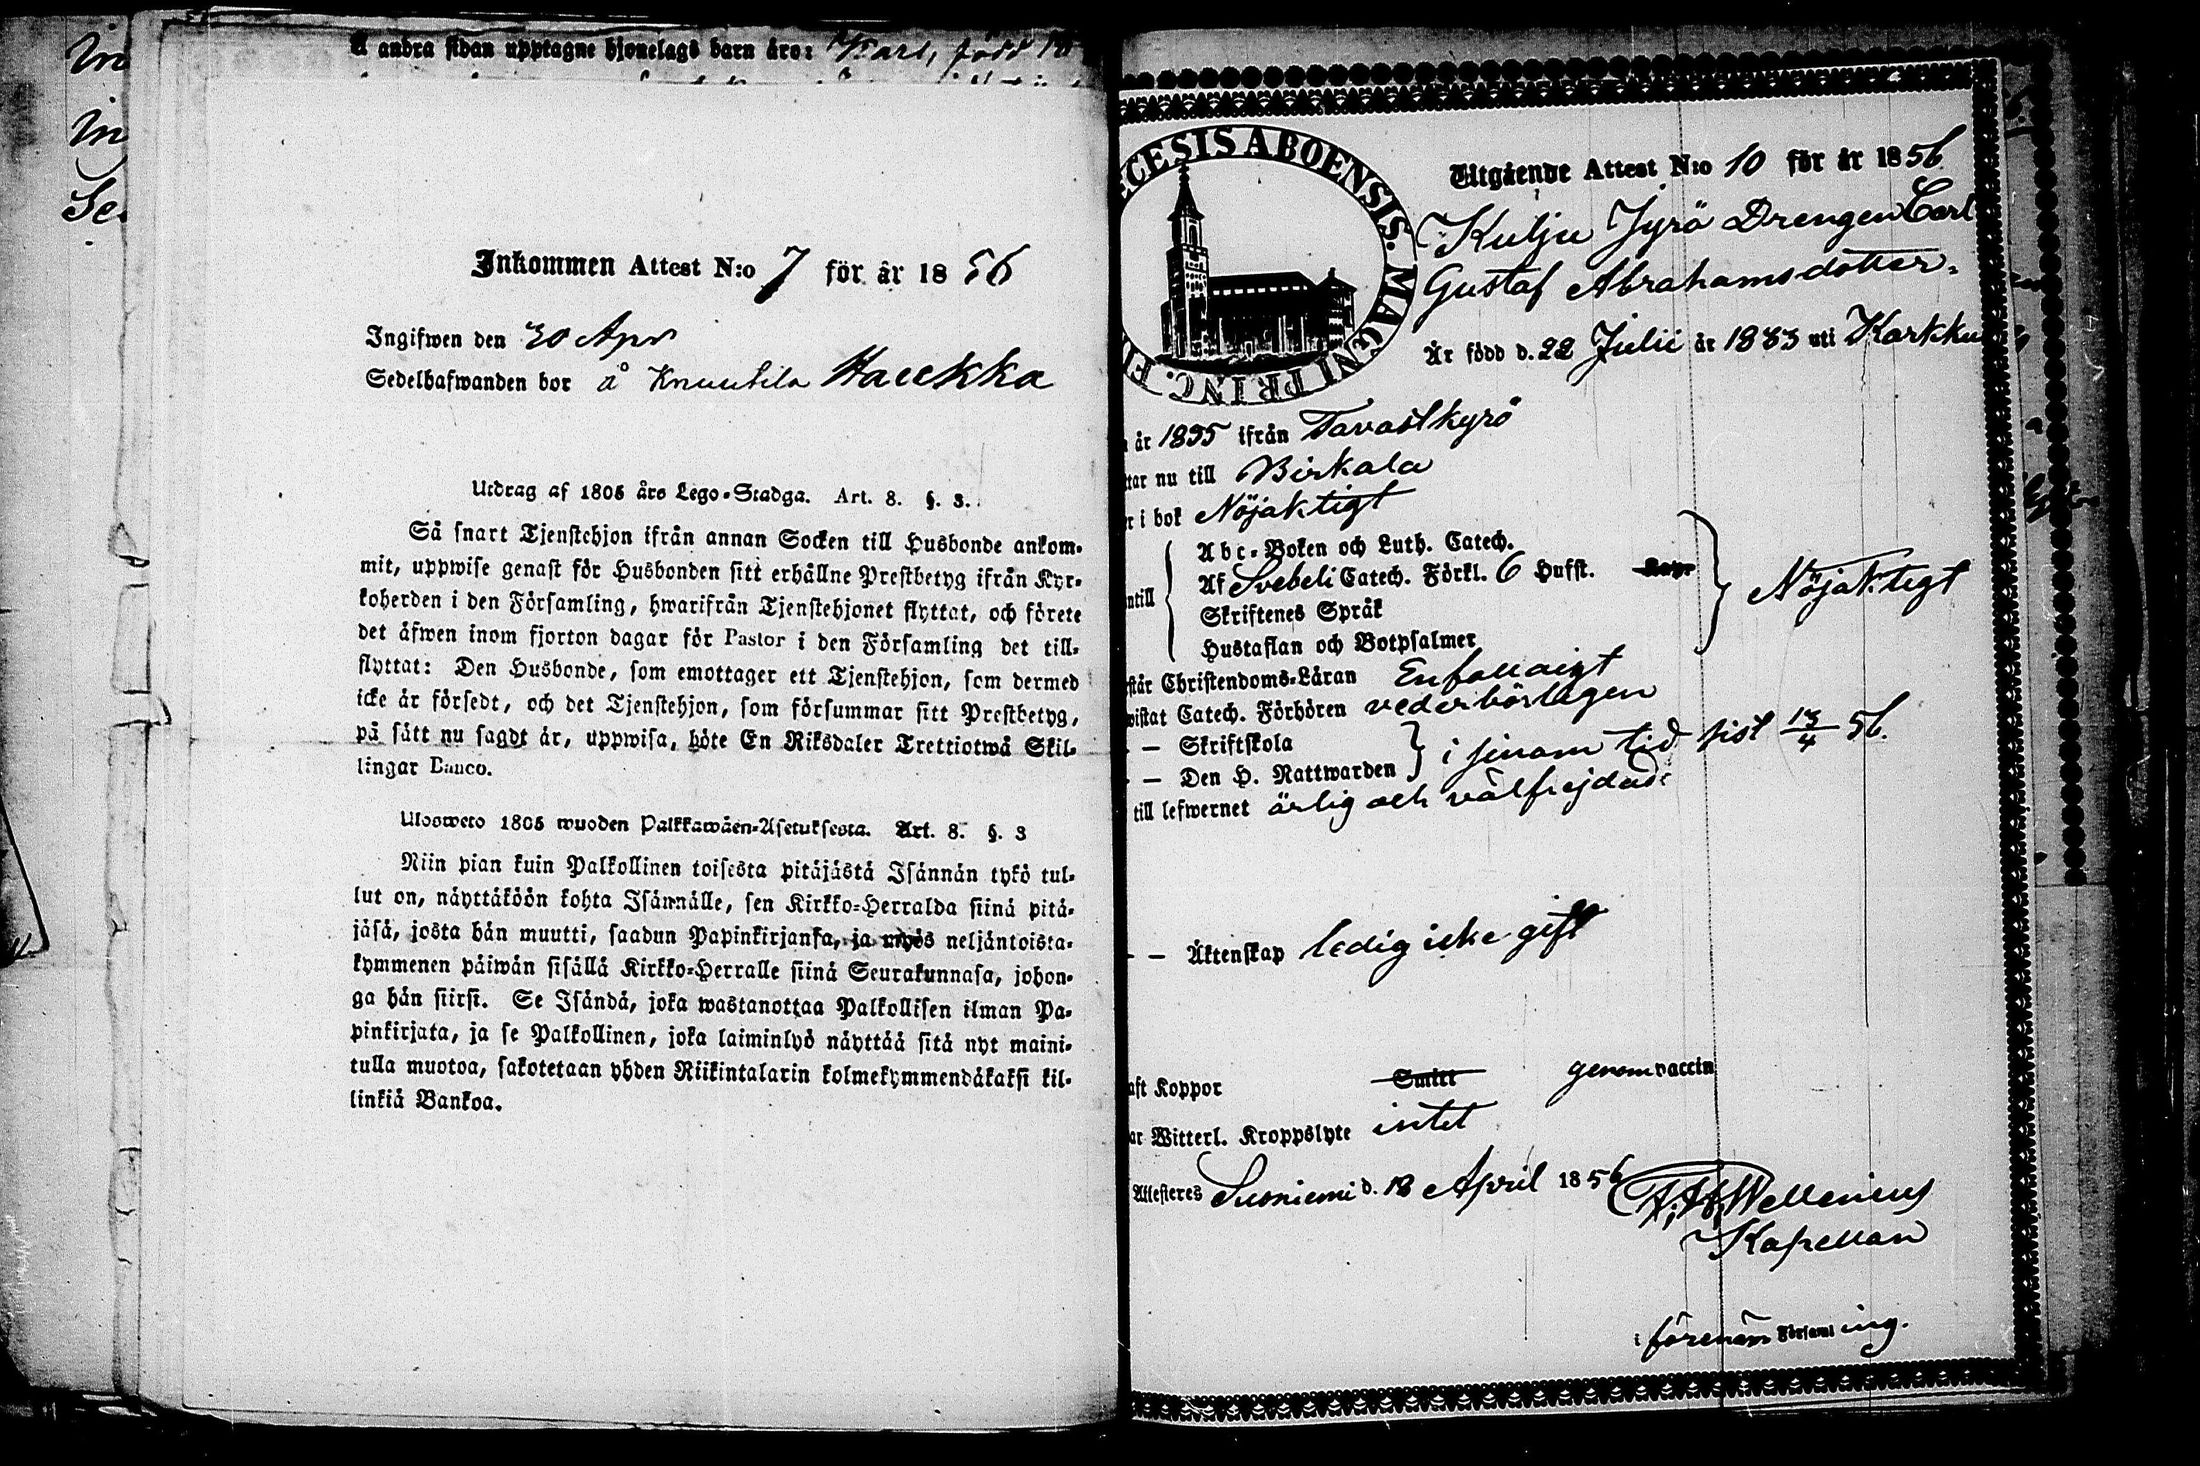 å andra sidan upptagne hjonelags barn äro: Karl, född 18
Inkommen Attest N:o 7 för år 1856
Ingifwen den 30 Apr
Sedelhafwanden bor å Knuutila Haukka
Utdrag af 1805 års Lego-Stadga. Art. 8. §. 3.
Så snart Tjenstehjon ifrån annan Socken till Husbonde ankom-
mit, uppwise genast för Husbonden sitt erhållne Prestbetyg ifrån Kyr-
koherden i den Församling, hwarifrån Tjenstehjonet flyttat, och förete
det äfwen inom fjorton dagar för Pastor i den Församling det till-
flyttat: Den Husbonde, som emottager ett Tjenstehjon, som dermed
icke är försedt, och det Tjenstehjon, som försummar sitt Prestbetyg,
på sätt nu sagdt är, uppwisa, böte En Riksdaler Trettiotwå Skil-
lingar Banco.
Ulosweto 1805 wuoden Palkkawäen-Asetuksesta. Art. 8. §. 3
Niin pian kuin Palkollinen toisesta pitäjästä Isännän tykö tul-
lut on, näyttäköön kohta Isännälle, sen Kirkko-Herralda siinä pitä-
jäsä, josta hän muutti, saadun Papinkirjansa, ja myös neljäntoista-
kymmenen päiwän sisällä Kirkko-Herralle siinä Seurakunnasa, johon-
ga hän siirsi. Se Isändä, joka wastanottaa Palkollisen ilman Pa-
pinkirjata, ja se Palkollinen, joka laiminlyö näyttää sitä nyt maini-
tulla muotoa, sakotetaan yhden Riikintalarin kolmekymmendäkaksi kil-
linkiä Bankoa.
ECESIS ABOENSIS. MAGNI PRINC. FI
Utgående Attest N:o 10 för år 1856
Kulju Jyrä Drengen Carl
Gustaf Abrahamsdotter
Är född d. 22 Julii år 1833 uti Karkku
år 1855 ifrån Tavastkyrö
ttar nu till Birkala
er i bok Nöjaktigt
Abc-Boken och Luth. Catech.
Af Svebeli Catech. Förkl. 6 Hufst.
ntill Skriftenes Språk Nöjaktigt
Hustaflan och Botpsalmer
står Christendoms-Läran Enfalldigt
wistat Catech. Förhören vederbörligen
— — Skriftskola
— — Den H. Nattwarden i sinom tid sist 13/4 56.
till lefwernet ärlig och välfrejdad
— — Äktenskap ledig icke gift
aft Koppor Smitt genom vaccin
ar Witterl. Kroppslyte intet
Attesteres Suoniemi d. 18 April 1856
Wellenius
Kapellan
i förenäm Församling.